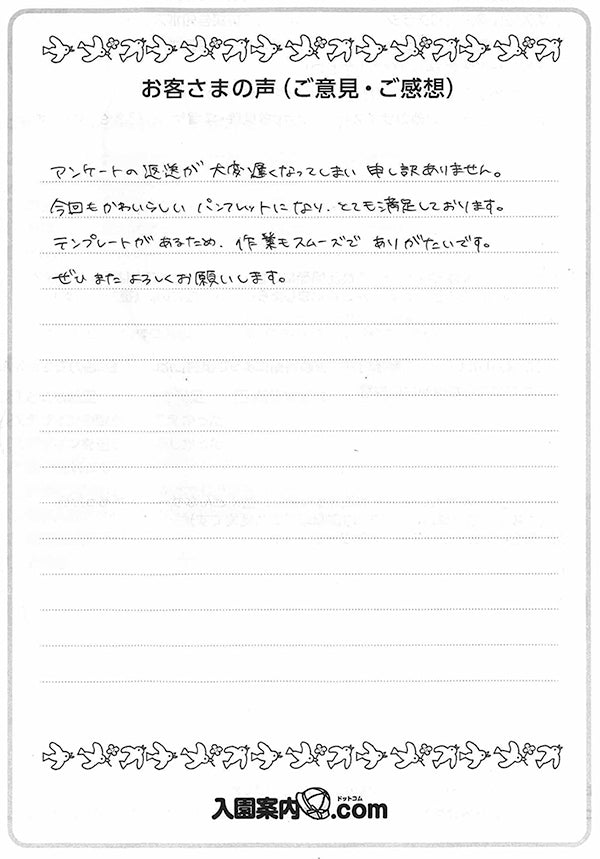 お客さまの声（ご意見・ご感想）
アンケートの返送が 大変遅くなってしまい 申し訳ありません。
今回もかわいらしい パンフレットになり、とても満足しております。
テンプレートがあるため、作業もスムーズで ありがたいです。
ぜひまた よろしくお願いします。
入園案内ドットコム.com